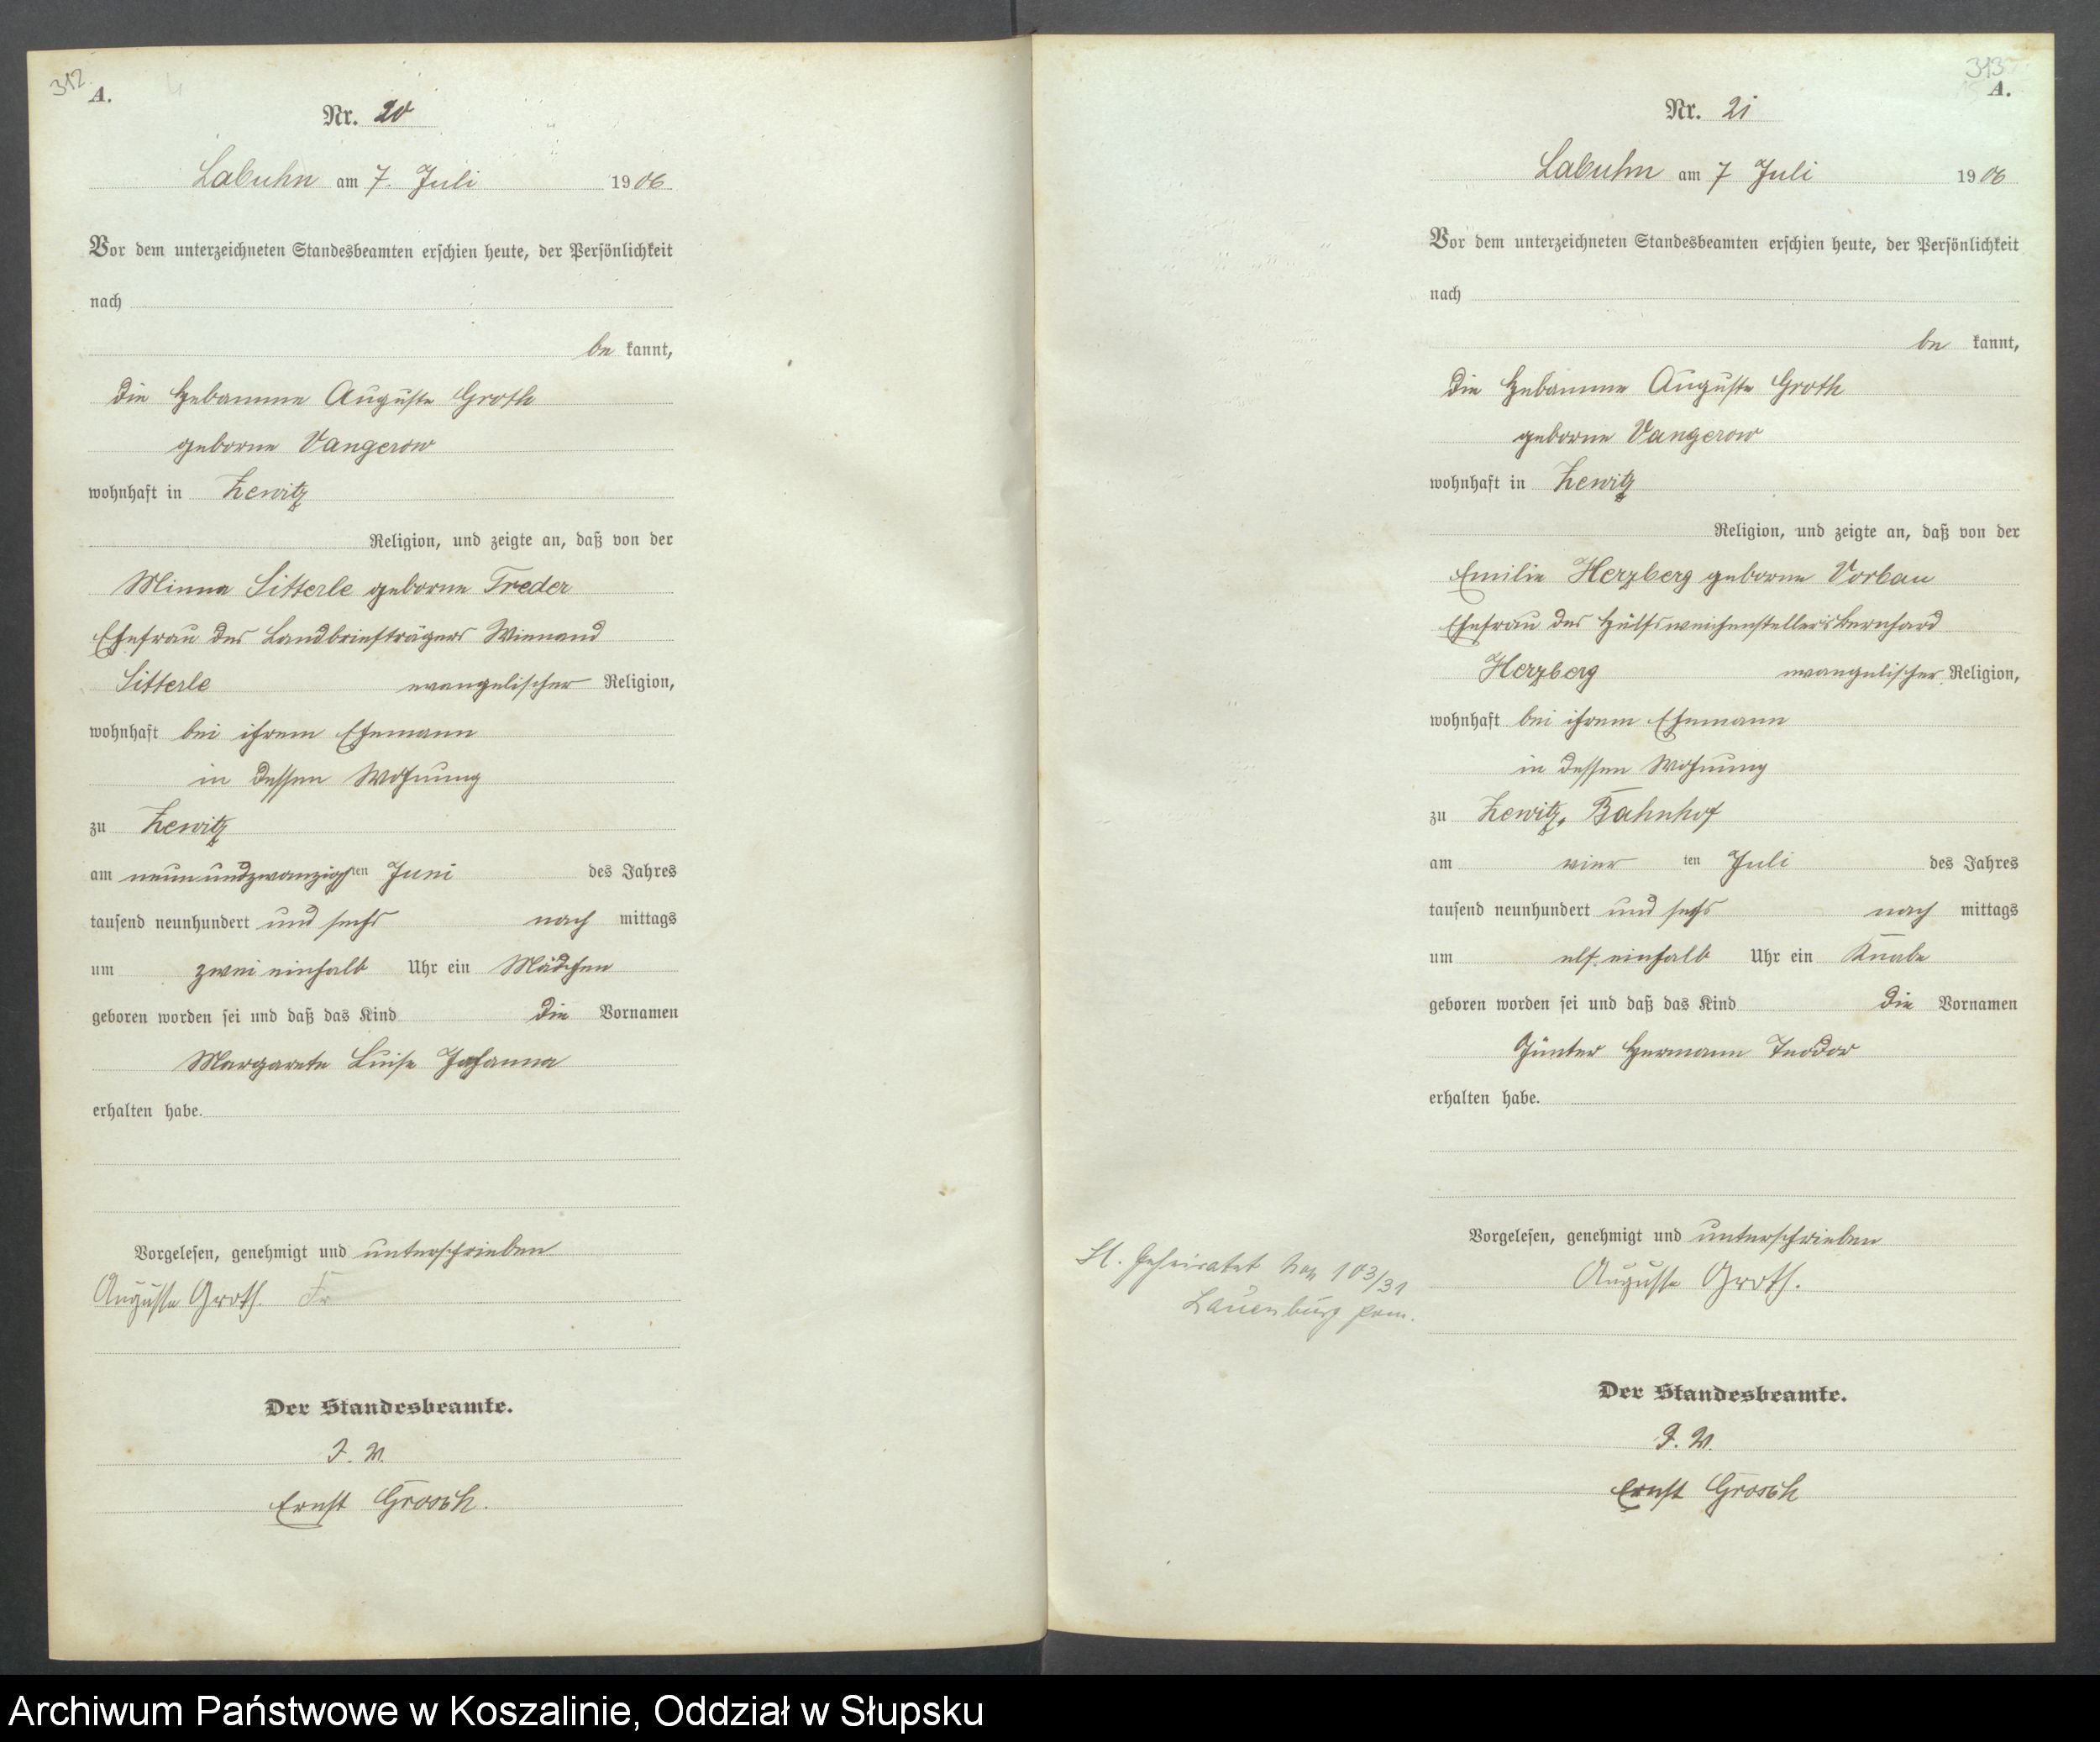 312
A.
Nr. 20
Labuhn am 7. Juli 1906
Vor dem unterzeichneten Standesbeamten erschien heute, der Persönlichkeit
nach
be kannt,
die Hebamme Auguste Groth
geborne Vangerow
wohnhaft in Zewitz
Religion, und zeigte an, daß von der
Minna Sitterle geborne Treder
Ehefrau des Landbriefträgers Wienand
Sitterle evangelischer Religion,
wohnhaft bei ihrem Ehemann
in dessen Wohnung
zu Zewitz
am neunundzwanzigsten Juni des Jahres
tausend neunhundert und sechs nach mittags
um zwei einhalb Uhr ein Mädchen
geboren worden sei und daß das Kind die Vornamen
Margarete Luise Johanna
erhalten habe.
Vorgelesen, genehmigt und unterschrieben
Auguste Groth. Fr
Der Standesbeamte.
J. V.
Ernst
313
A.
Nr. 21
Labuhn am 7 Juli 1906
Vor dem unterzeichneten Standesbeamten erschien heute, der Persönlichkeit
nach
be kannt,
die Hebamme Auguste Groth
geborne Vangerow
wohnhaft in Zewitz
Religion, und zeigte an, daß von der
Emilie Herzberg geborne Vorbau
Ehefrau des Hülfsweichenstellers Bernhard
Herzberg evangelischer Religion,
wohnhaft bei ihrem Ehemann
in dessen Wohnung
zu Zewitz, Bahnhof
am vier ten Juli des Jahres
tausend neunhundert und sechs nach mittags
um elf einhalb Uhr ein Knabe
geboren worden sei und daß das Kind die Vornamen
Günter Hermann Teodor
erhalten habe.
Vorgelesen, genehmigt und unterschrieben
Auguste Groth.
Geheiratet 103/31
Lauenburg Pom.
Der Standesbeamte.
J. V.
Ernst
Archiwum Państwowe w Koszalinie, Oddział w Słupsku